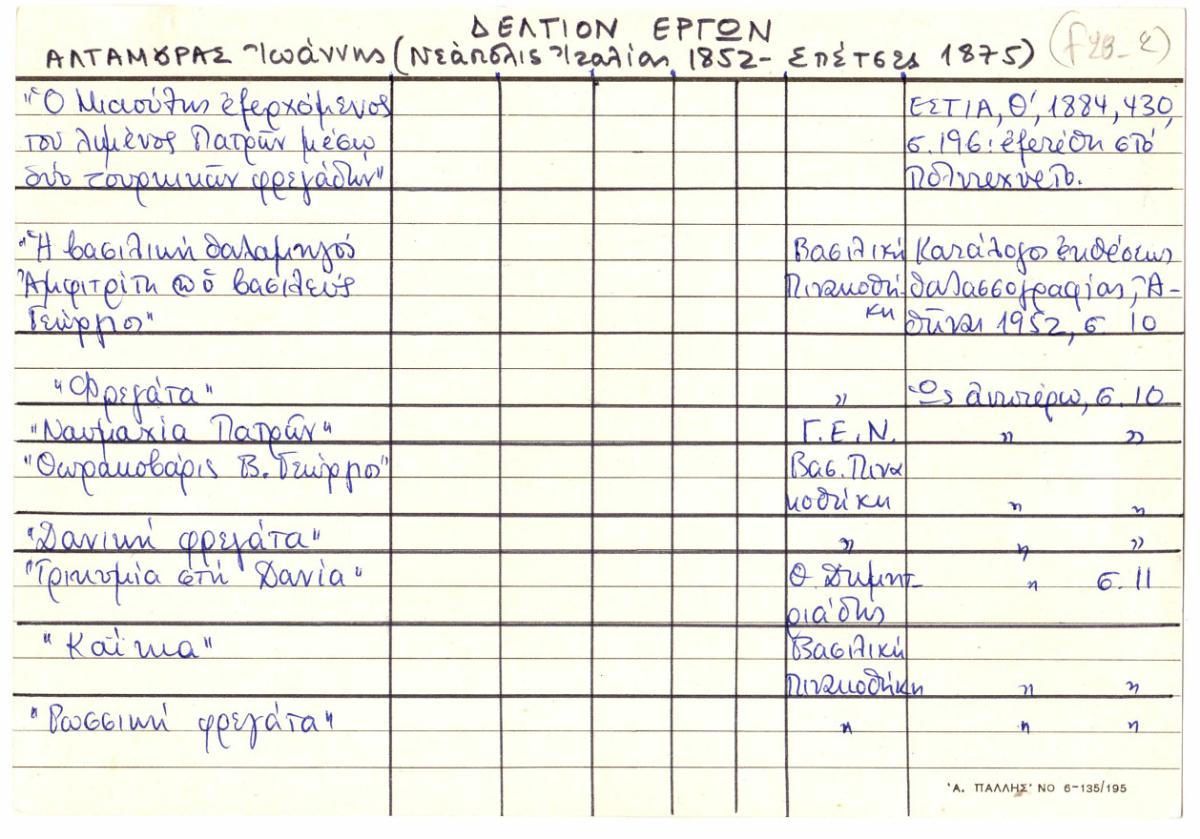 ΔΕΛΤΙΟΝ ΕΡΓΩΝ
ΑΛΤΑΜΟΥΡΑΣ Ἰωάννης (Νεάπολις Ἰταλίας, 1852- Σπέτσες 1875)
"Ὁ Μιαούλης ἐξερχόμενος
του λιμένος Πατρῶν μέσῳ
δύο τουρκικῶν φρεγάδων"
ΕΣΤΙΑ, Θ', 1884, 430,
σ. 196: ἐξετέθη στό
Πολυτεχνεῖο.
"Ἡ βασιλική θαλαμηγός
Ἀμφιτρίτη @ ὁ βασιλεύς
Γεώργιος"
Βασιλική
Πινακοθή-
κη
Κατάλογος ἐκθέσεως
θαλασσογραφίας, Ἀ-
θῆναι 1952, σ. 10
"Φρεγάτα" " Ὡς ἀνωτέρω, σ. 10
"Ναυμαχία Πατρῶν" Γ.Ε.Ν. " "
"Θωρακοβάρις Β. Γεώργιος" Βασ. Πινα
κοθήκη " "
"Δανική φρεγάτα" " " "
"Τρικυμία στή Δανία" Θ. Δημητ- " σ. 11
ριάδης
"Καΐκια" Βασιλική
Πινακοθήκη " "
"Ρωσσική φρεγάτα" " " "
'Α. ΠΑΛΛΗΣ' ΝΟ 6-135/195